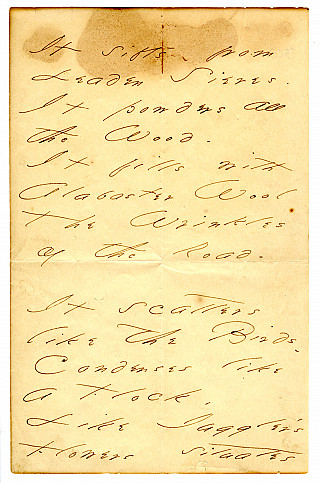 It sifts from
Leaden Sieves.
It powders all
the Wood.
It fills with
Alabaster Wool
The Wrinkles
of the Road.
It scatters
like the Birds.
Condenses like
a Flock.
Like Juggler's
Flowers situates